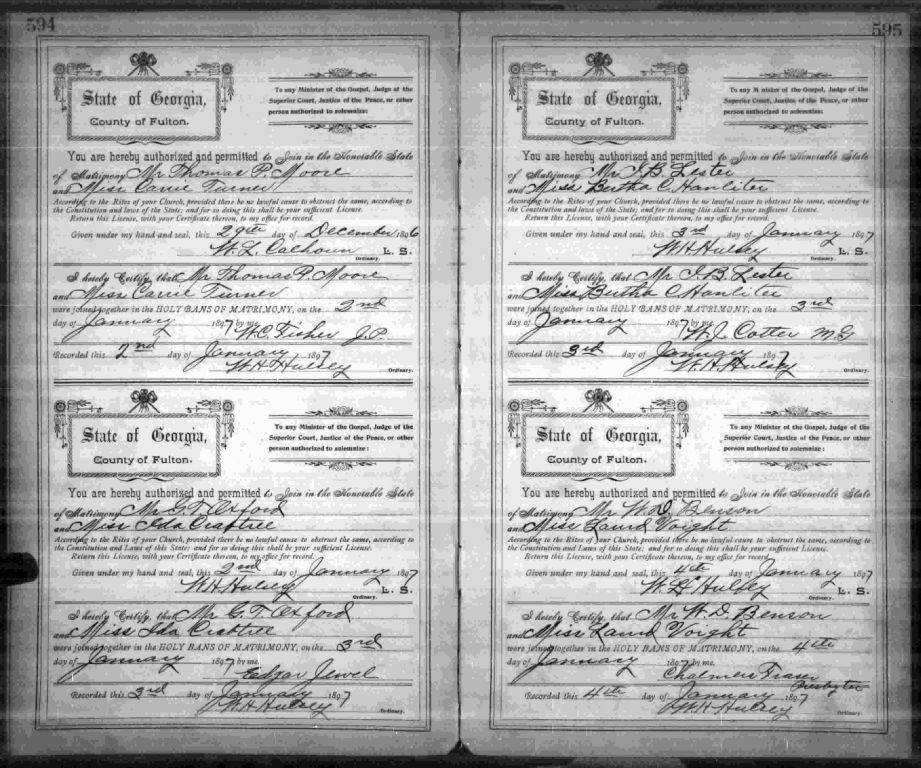 594
State of Georgia,
County of Fulton.
To any Minister of the Gospel, Judge of the
Superior Court, Justice of the Peace, or other
person authorized to solemnize:
You are hereby authorized and permitted to Join in the Honorable State
of Matrimony Mr Thomas P. Moore
and Miss Carrie Turner
According to the Rites of your Church, provided there be no lawful cause to obstruct the same, according to
the Constitution and laws of the State; and for so doing this shall be your sufficient License.
Return this License, with your Certificate thereon, to my office for record.
Given under my hand and seal, this 29th day of December 1896
W. L. Calhoun L. S.
Ordinary.
I hereby Certify, that Mr Thomas P. Moore
and Miss Carrie Turner
were joined together in the HOLY BANS OF MATRIMONY, on the 2nd
day of January 1897 by me
W. C. Fisher J.P.
Recorded this 2nd day of January 1897
W. H. Hulsey Ordinary.
State of Georgia,
County of Fulton.
To any Minister of the Gospel, Judge of the
Superior Court, Justice of the Peace, or other
person authorized to solemnize:
You are hereby authorized and permitted to Join in the Honorable State
of Matrimony Mr G. T. Oxford
and Miss Ida Crabtree
According to the Rites of your Church, provided there be no lawful cause to obstruct the same, according to
the Constitution and Laws of this State; and for so doing this shall be your sufficient License.
Return this License, with your Certificate thereon, to my office for record.
Given under my hand and seal, this 2nd day of January 1897
W. H. Hulsey L. S.
Ordinary.
I hereby Certify, that Mr G. T. Oxford
and Miss Ida Crabtree
were joined together in the HOLY BANS OF MATRIMONY, on the 3rd
day of January 1897 by me.
Edgar Jewel
Recorded this 3rd day of January 1897
W. H. Hulsey Ordinary.
595
State of Georgia,
County of Fulton.
To any Minister of the Gospel, Judge of the
Superior Court, Justice of the Peace, or other
person authorized to solemnize:
You are hereby authorized and permitted to Join in the Honorable State
of Matrimony Mr I. B. Lester
and Miss Bertha C Hanliter
According to the Rites of your Church, provided there be no lawful cause to obstruct the same, according to
the Constitution and laws of the State; and for so doing this shall be your sufficient License.
Return this License, with your Certificate thereon, to my office for record.
Given under my hand and seal, this 3rd day of January 1897
W. H. Hulsey L. S.
Ordinary.
I hereby Certify, that Mr I. B. Lester
and Miss Bertha C Hanliter
were joined together in the HOLY BANS OF MATRIMONY, on the 3rd
day of January 1897 by me
W. J. Cotter M G
Recorded this 3rd day of January 1897
W. H. Hulsey Ordinary.
State of Georgia,
County of Fulton.
To any Minister of the Gospel, Judge of the
Superior Court, Justice of the Peace, or other
person authorized to solemnize:
You are hereby authorized and permitted to Join in the Honorable State
of Matrimony Mr W. D. Benson
and Miss Laura Voight
According to the Rites of your Church, provided there be no lawful cause to obstruct the same, according to
the Constitution and Laws of this State; and for so doing this shall be your sufficient License.
Return this License, with your Certificate thereon, to my office for record
Given under my hand and seal, this 4th day of January 1897
W. H. Hulsey L. S.
Ordinary.
I hereby Certify, that Mr W. D. Benson
and Miss Laura Voight
were joined together in the HOLY BANS OF MATRIMONY, on the 4th
day of January 1897 by me.
Chalmers Fraser
Presbyter
Recorded this 4th day of January 1897
W. H. Hulsey Ordinary.